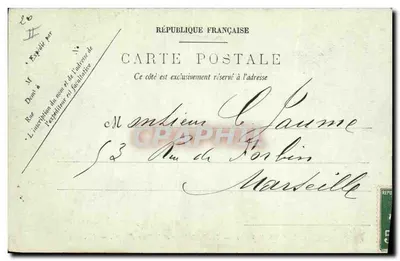 20
II
RÉPUBLIQUE FRANÇAISE
CARTE POSTALE
Ce côté est exclusivement réservé à l'adresse
* Expédié par
M
N°
Demt à
Rue
* L'inscription du nom et de l'adresse de
l'expéditeur est facultative
Monsieur C Jaume
53 Rue de Turbin
Marseille